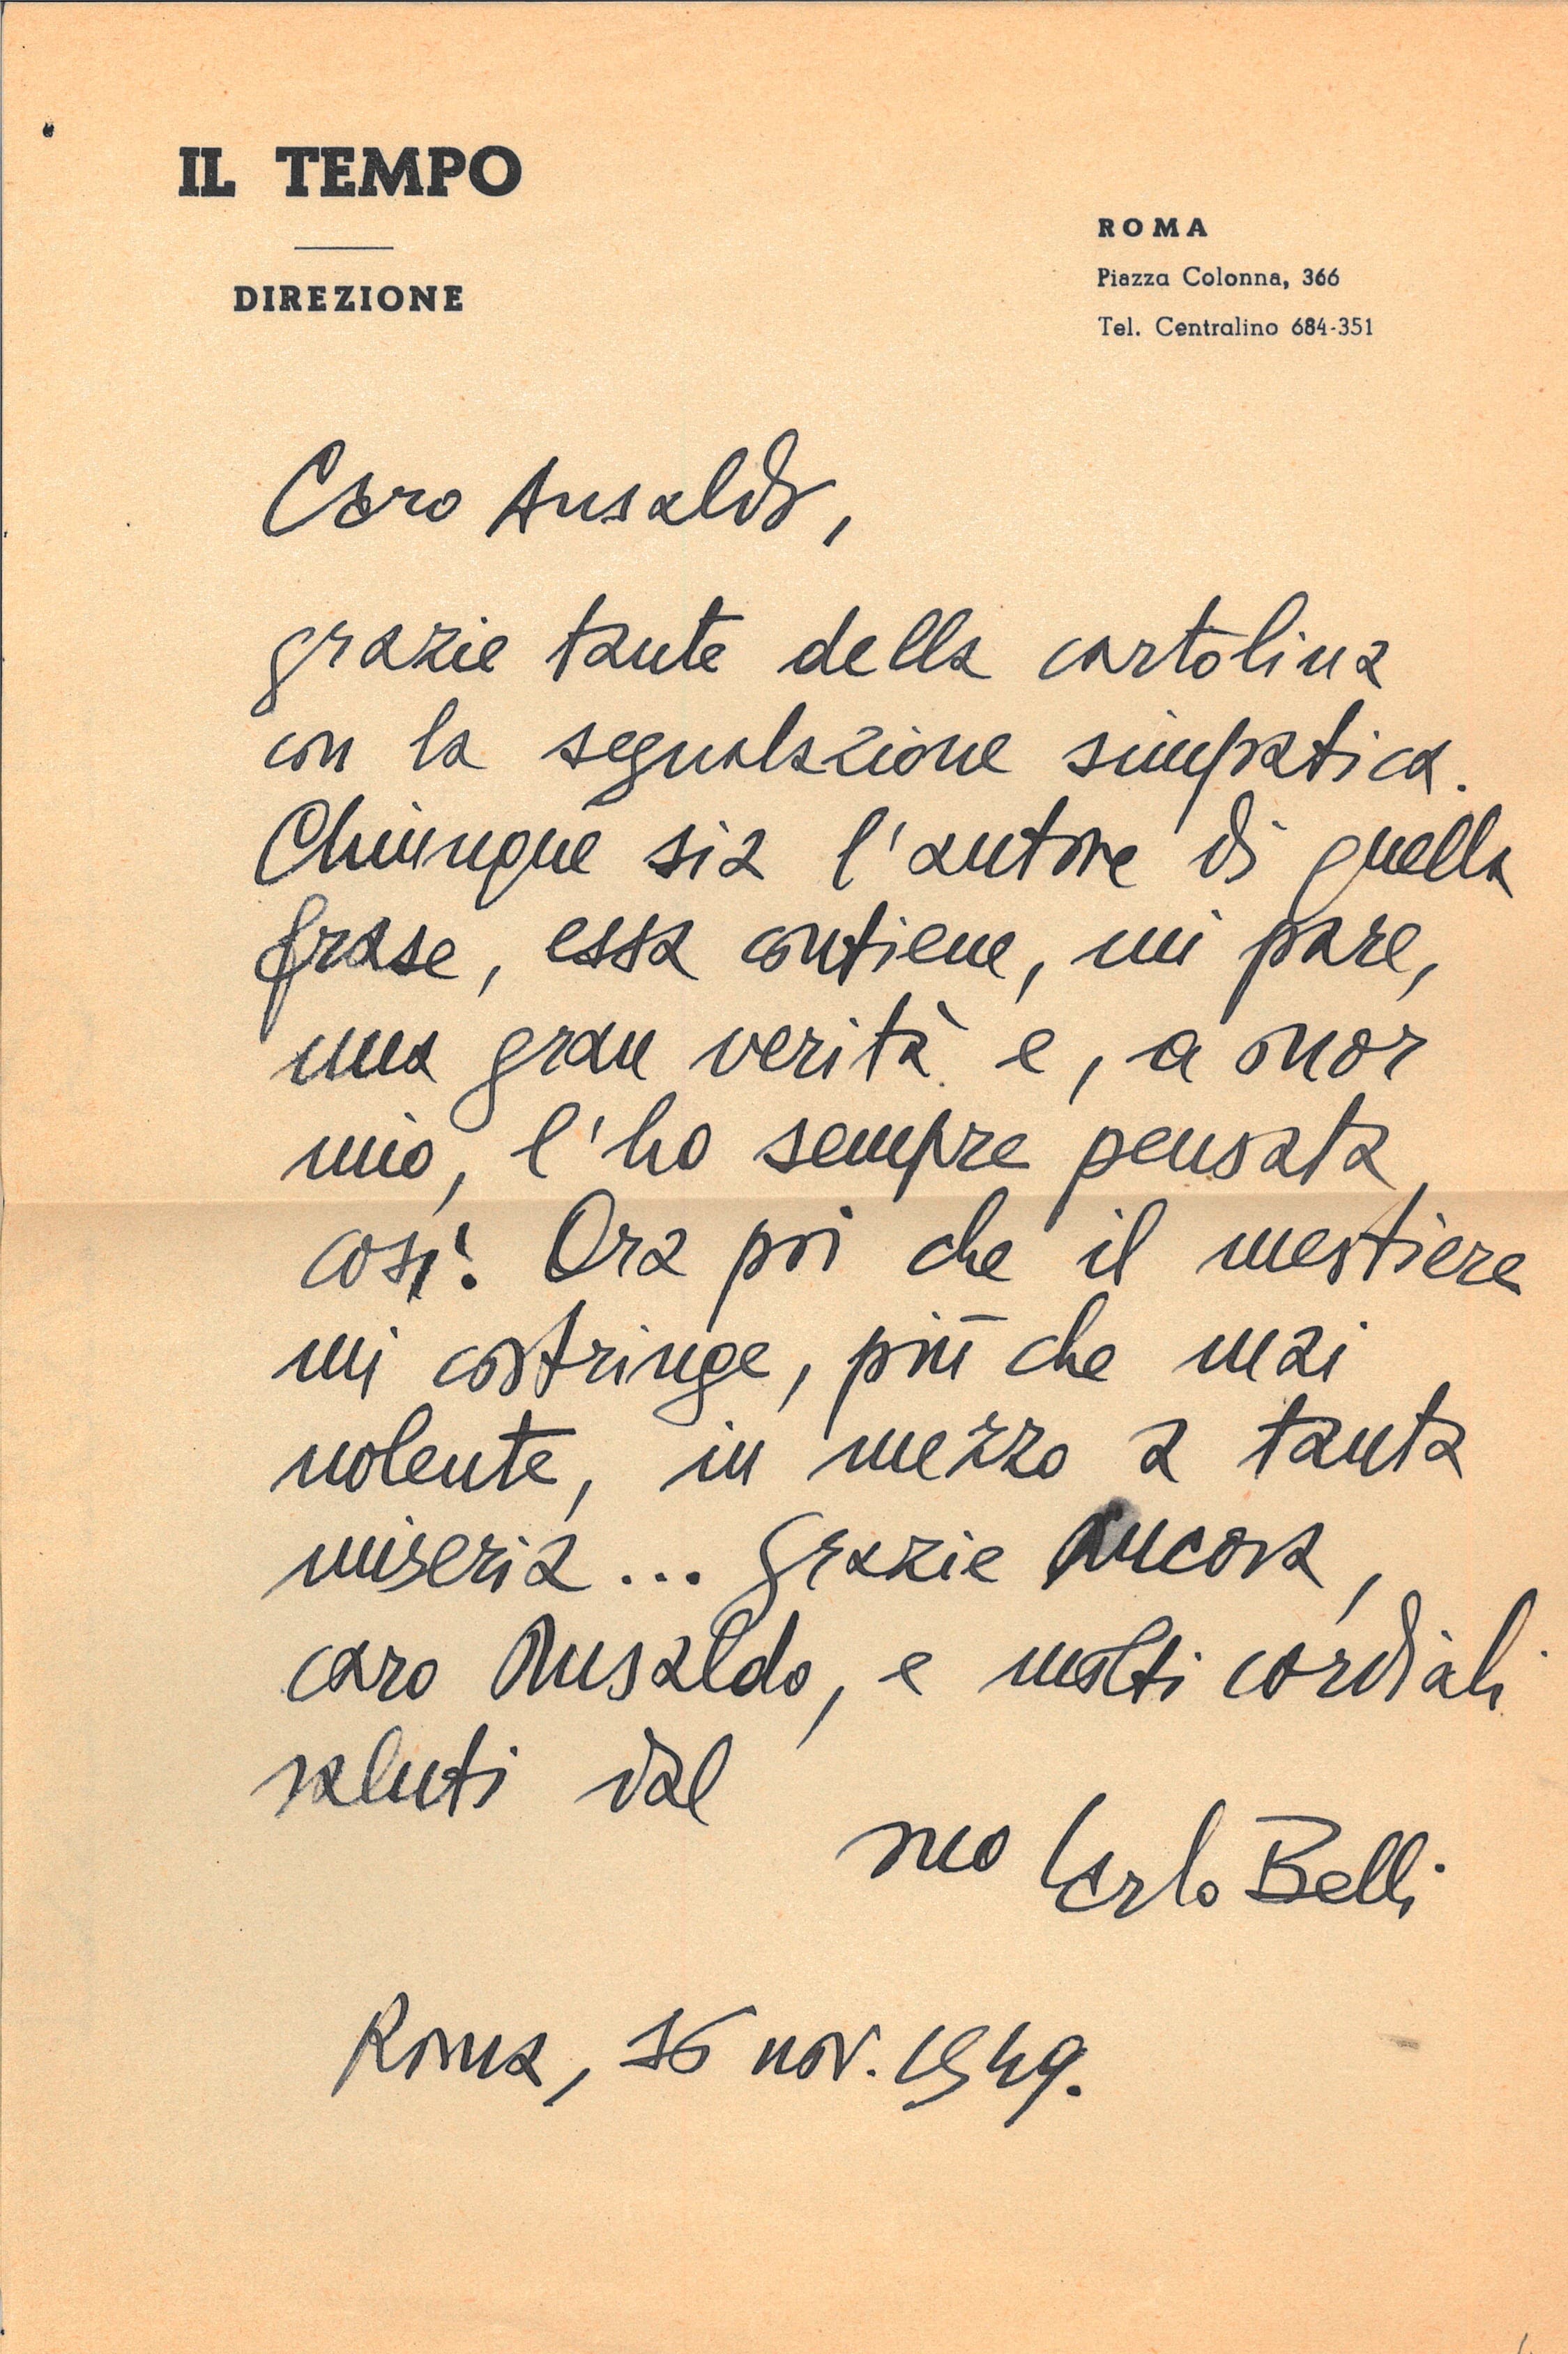 IL TEMPO
DIREZIONE
ROMA
Piazza Colonna, 366
Tel. Centralino 684-351
Caro Ansaldo,
grazie tante della cartolina
con la segnalazione simpatica.
Chiunque sia l'autore di quella
frase, essa contiene, mi pare,
una gran verità e, a onor
mio, l'ho sempre pensata
così. Ora poi che il mestiere
mi costringe, più che mai
nolente, in mezzo a tanta
miseria... Grazie ancora,
caro Ansaldo, e molti cordiali
saluti dal
suo Carlo Belli
Roma, 16 nov. 1949.